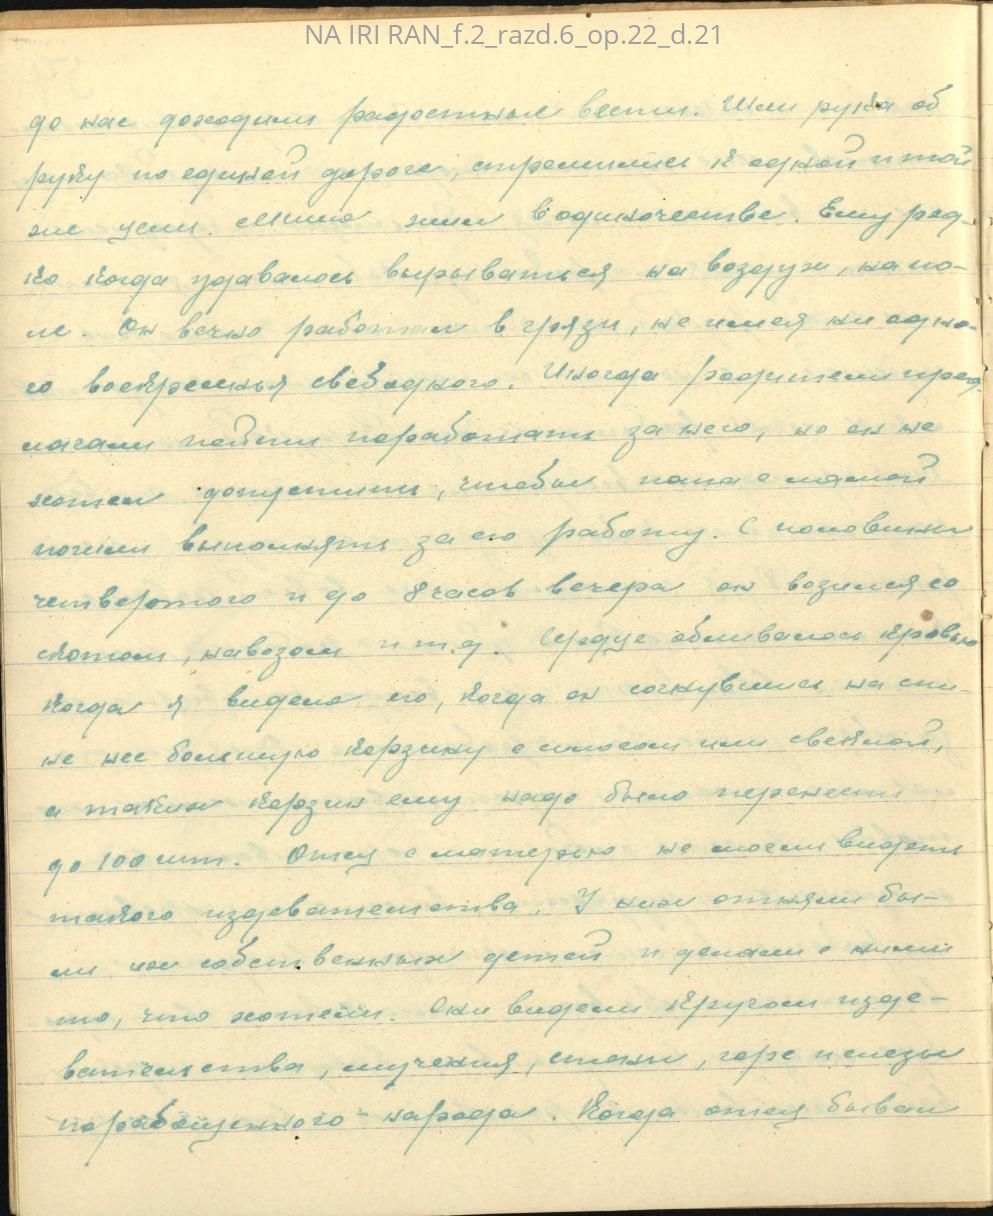 NA IRI RAN_f.2_razd.6_op.22_d.21
до нас доходили радостные вести. Шли рука об
руку по единой дороге, стремились к одной и той
же цели. Миша жил в одиночестве. Ему ред-
ко когда удавалось вырываться на воздух, на по-
ле. Он вечно работал в грязи, не имея ни одно-
го воскресенья свободного. Иногда родители пред-
лагали пойти поработать за него, но он не
хотел допустить, чтобы папа с мамой
пошли выполнять за его работу. С половины
четвертого и до 8 часов вечера он возился со
скотом, навозом и т.д. Сердце обливалось кровью
когда я видела его, когда он согнувшись на спи-
не нес большую корзину с силосом или свеклой,
а таких корзин ему надо было перенести
до 100 шт. Отец с матерью не могли видеть
такого издевательства. У них отняли бы-
ли их собственных детей и делали с ними
то, что хотели. Они видели кругом изде-
вательства, мучения, стоны, горе и слезы
порабощенного народа. Когда отец бывал